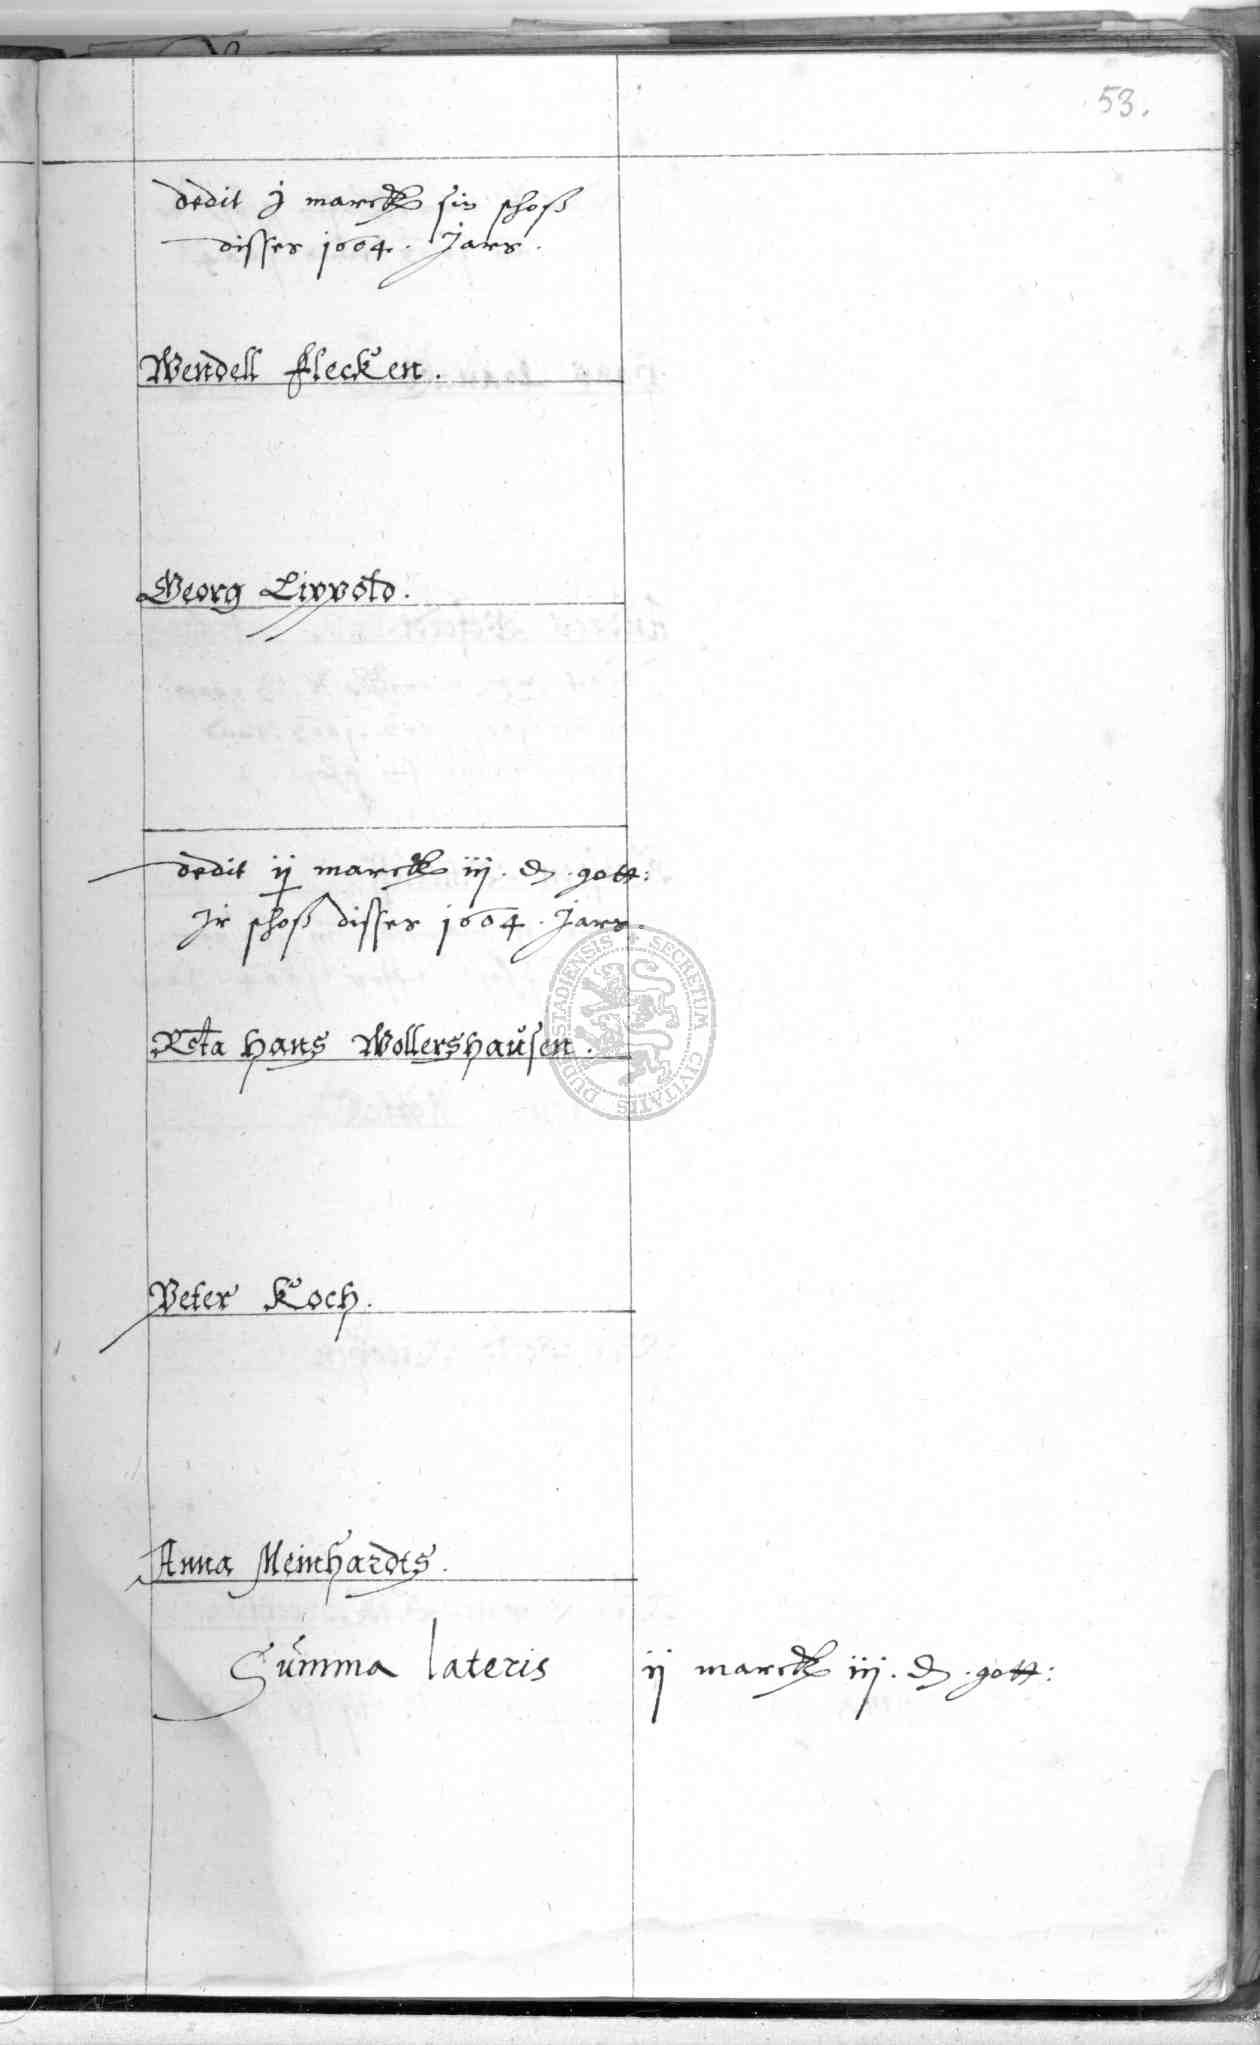 53.
dedit j marck sin schoß
disses 1604. Jars.
Wendell Flecken.
Georg Lippold.
dedit ij marck iij. ₰. gott:
Jr schoß disses 1604. Jars.
Rcta Hans Wollershaüsen.
Peter Koch.
Anna Meinhardts.
Summa lateris ij marck iij. ₰. gott:
SECRETUM CIVITATIS DUDERSTADIENSIS